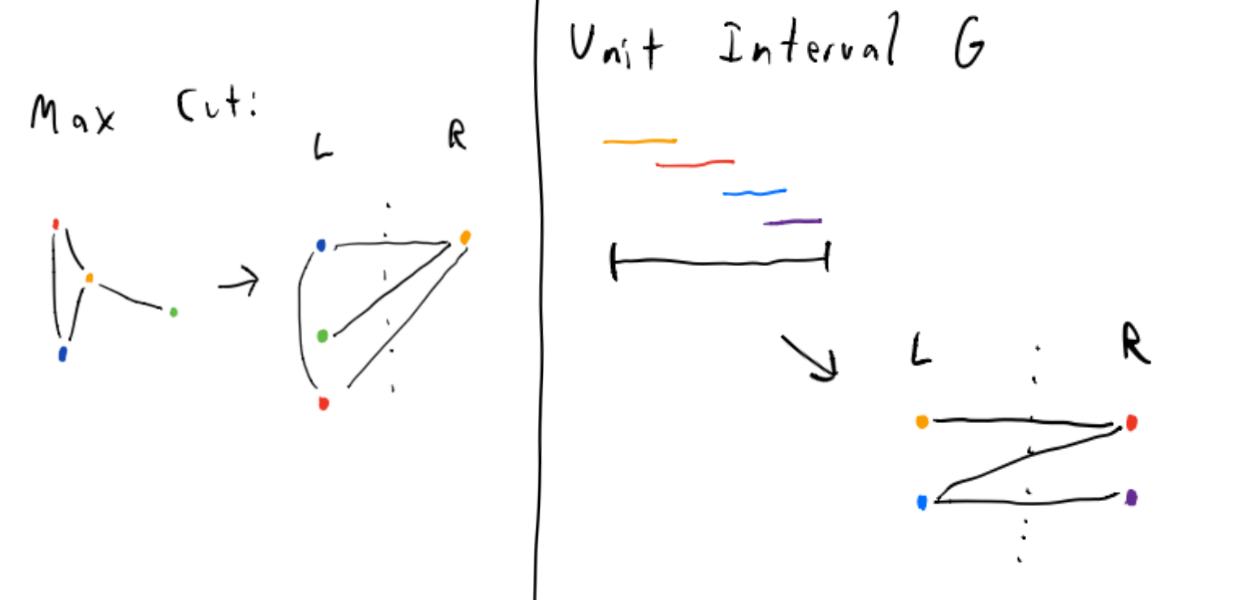 Max Cut:
L R
Unit Interval G
L R